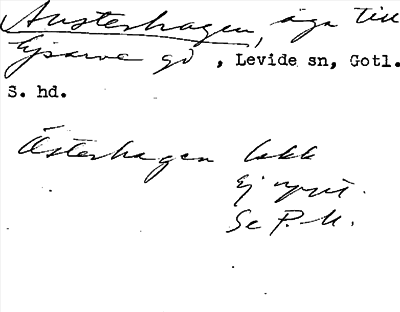 Austerhagen, äga till
Ejsarve gd, Levide sn, Gotl.
S. hd.
Österhagen lekk
Ej uppt.
Se P.M.